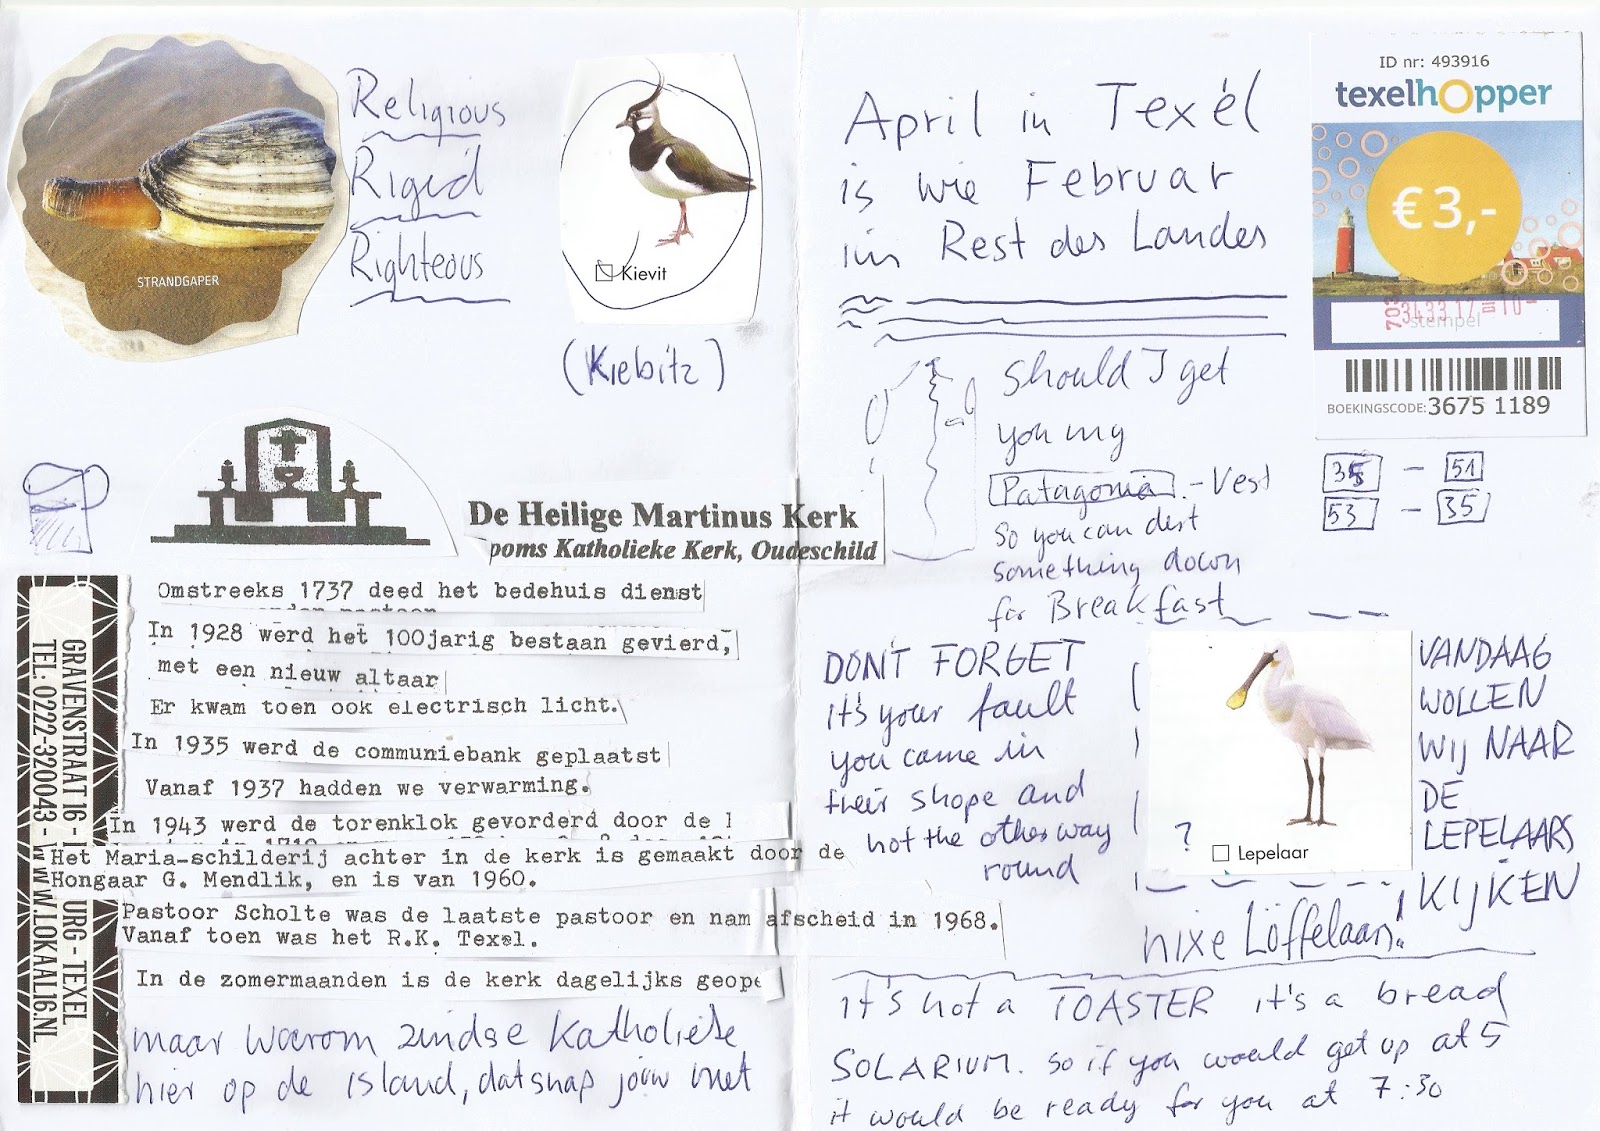 STRANDGAPER
Religious
Rigid
Righteous
Kievit
(Kiebitz)
De Heilige Martinus Kerk
poms Katholieke Kerk, Oudeschild
Omstreeks 1737 deed het bedehuis dienst
In 1928 werd het 100jarig bestaan gevierd,
met een nieuw altaar
Er kwam toen ook electrisch licht.
In 1935 werd de communiebank geplaatst
Vanaf 1937 hadden we verwarming.
In 1943 werd de torenklok gevorderd door de
Het Maria-schilderij achter in de kerk is gemaakt door de
Hongaar G. Mendlik, en is van 1960.
Pastoor Scholte was de laatste pastoor en nam afscheid in 1968.
Vanaf toen was het R.K. Texel.
In de zomermaanden is de kerk dagelijks geope
maar warom zindse Katholieke
hier op de island, dat snap jouw niet
GRAVENSTRAAT 16 - URG - TEXEL
TEL: 0222-320043 - WWW.LOKAAL16.NL
April in Texel
is wie Februar
im Rest des Landes
ID nr: 493916
texelhopper
€ 3,-
stempel
BOEKINGSCODE: 3675 1189
35 - 51
53 - 35
Should I get
you my
Patagonia - Vest
so you can dest
something down
for Breakfast
DON'T FORGET
it's your fault
you came in
their shope and
not the other way
round
?
Lepelaar
VANDAAG
WOLLEN
WIJ NAAR
DE
LEPELAARS
KIJKEN
nixe Löffelaan!
it's not a TOASTER it's a bread
SOLARIUM. so if you would get up at 5
it would be ready for you at 7:30